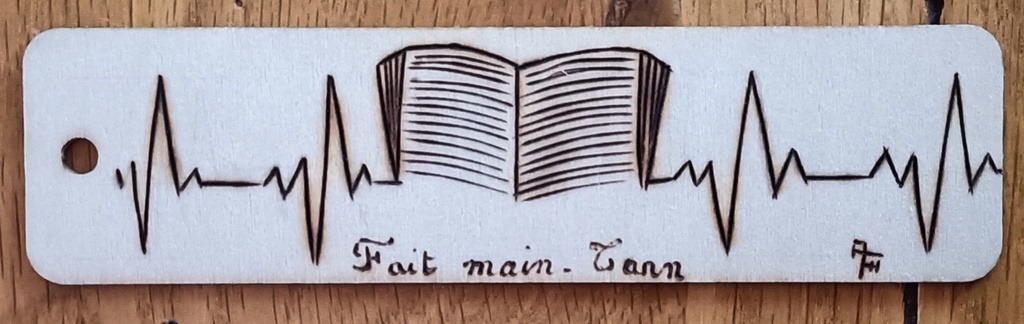 Fait main - Tann
AF